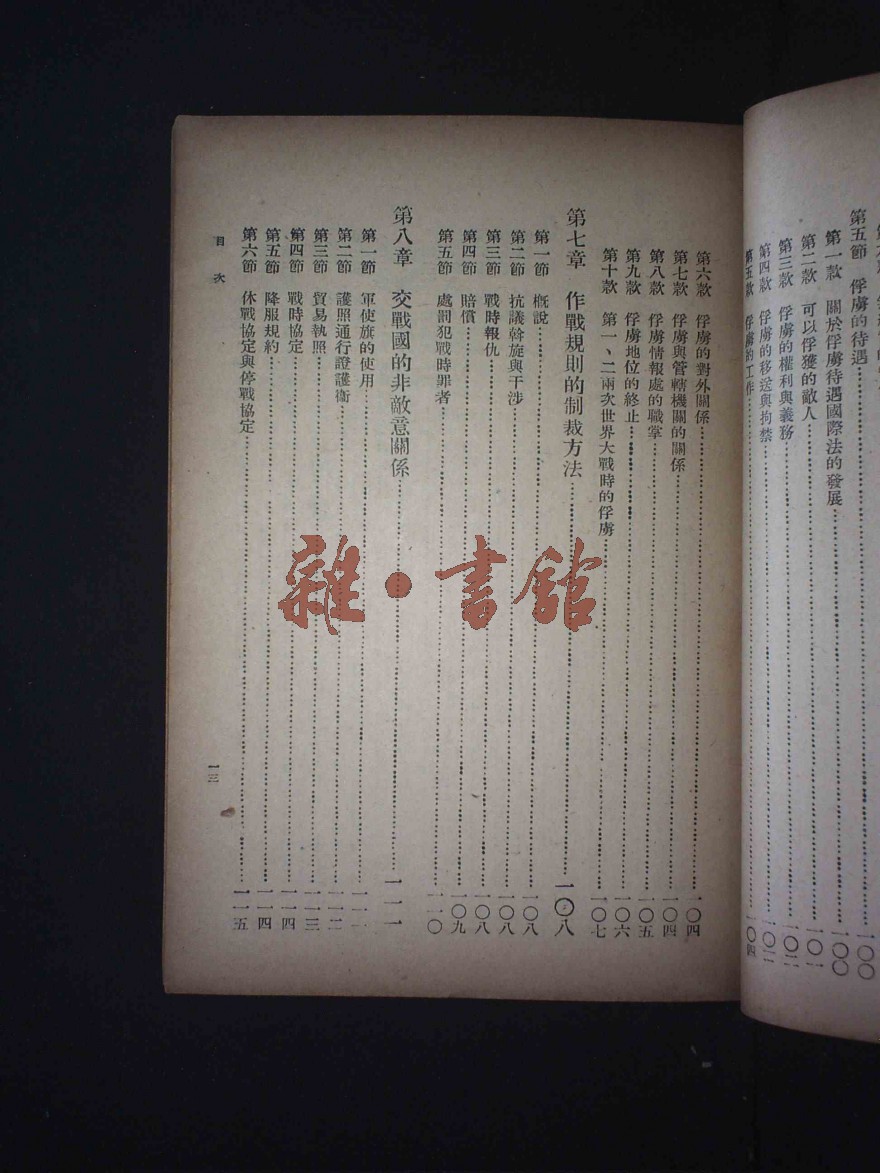 第五節　俘虜的待遇……一〇〇
第一款　關於俘虜待遇國際法的發展……一〇〇
第二款　可以俘獲的敵人……一〇一
第三款　俘虜的權利與義務……一〇二
第四款　俘虜的移送與拘禁……一〇二
第五款　俘虜的工作……一〇四
第六款　俘虜的對外關係……一〇四
第七款　俘虜與管轄機關的關係……一〇四
第八款　俘虜情報處的職掌……一〇五
第九款　俘虜地位的終止……一〇六
第十款　第一、二兩次世界大戰時的俘虜……一〇七
第七章　作戰規則的制裁方法……一〇八
第一節　槪說……一〇八
第二節　抗議斡旋與干涉……一〇八
第三節　戰時報仇……一〇八
第四節　賠償……一〇九
第五節　處罰犯戰時罪者……一一〇
第八章　交戰國的非敵意關係……一一一
第一節　軍使旗的使用……一一一
第二節　護照通行證護衛……一一二
第三節　貿易執照……一一三
第四節　戰時協定……一一四
第五節　降服規約……一一四
第六節　休戰協定與停戰協定……一一五
目次
一三
雜·書館